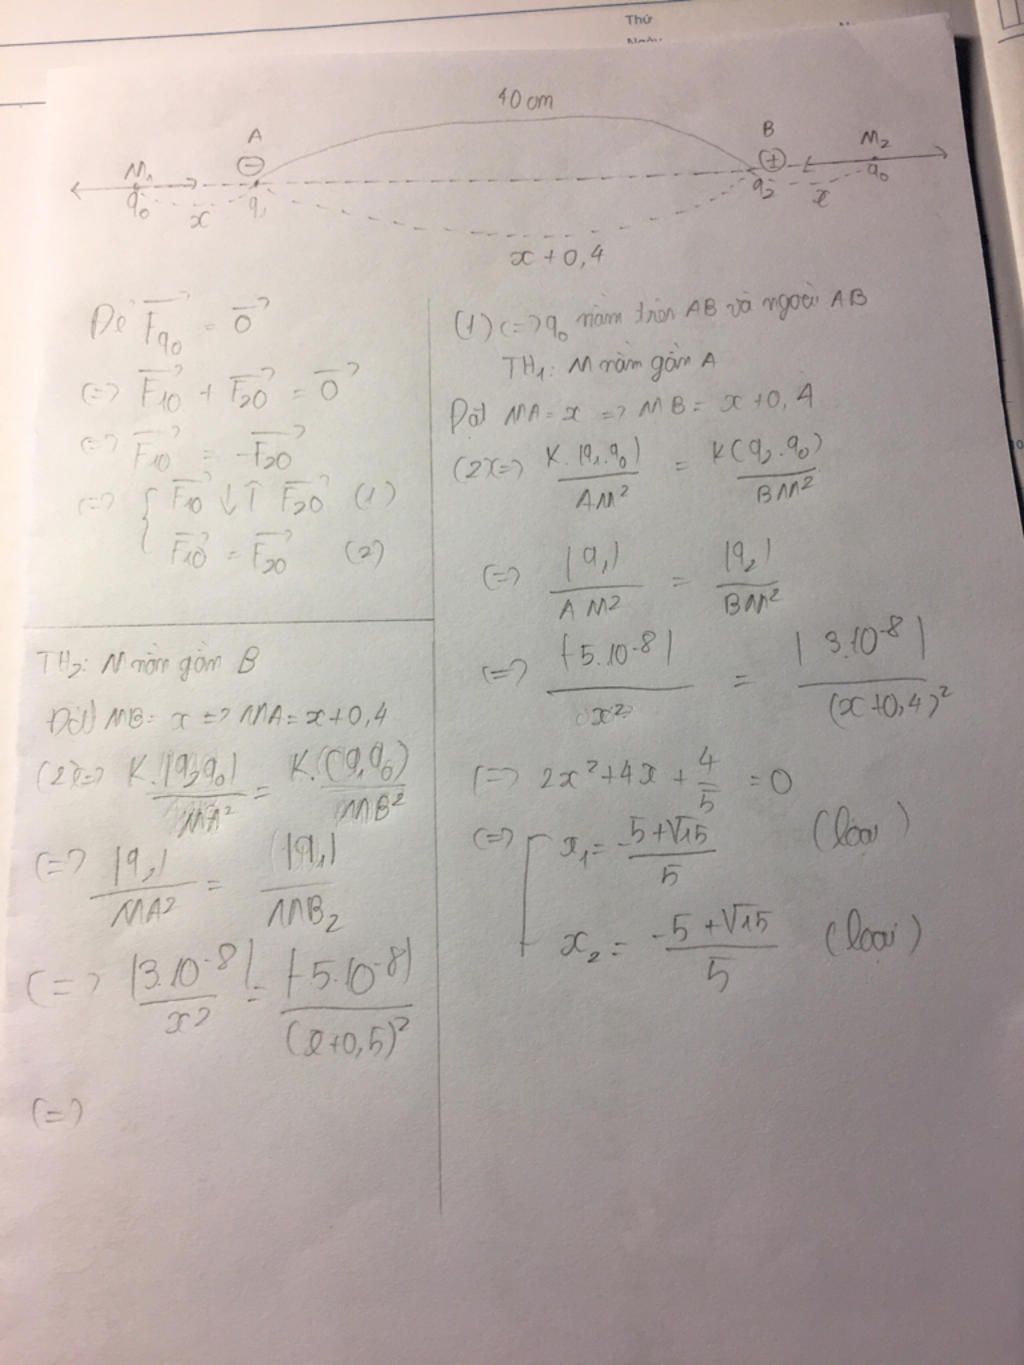 Thứ
Ngày
40 cm
A
B
M₁
M₂
(-)
(+)
q₀
x
q₁
q₂
x
q₀
x + 0,4
Để F⃗q₀ = 0⃗
(=) F⃗10 + F⃗20 = 0⃗
(=) F⃗10 = -F⃗20
(=) { F⃗10 ↓↑ F⃗20 (1)
F⃗10 = F⃗20 (2)
(1) (=) q₀ nằm trên AB và ngoài AB
TH₁: M nằm gần A
Đặt MA = x => MB = x + 0,4
(2)(=) K.|q₁.q₀| / AM² = K(q₂.q₀) / BM²
(=) |q₁| / AM² = |q₂| / BM²
(=) |-5.10⁻⁸| / x² = |3.10⁻⁸| / (x+0,4)²
(=) 2x² + 4x + 4/5 = 0
(=) [ x₁ = -5+√15 / 5 (loại)
x₂ = -5+√15 / 5 (loại)
TH₂: M nằm gần B
Đặt MB = x => MA = x + 0,4
(2)(=) K.|q₂q₀| / MA² = K.(q₁q₀) / MB²
(=) |q₁| / MA² = |q₁| / MB₂
(=) |3.10⁻⁸| / x² = |-5.10⁻⁸| / (x+0,5)²
(=)